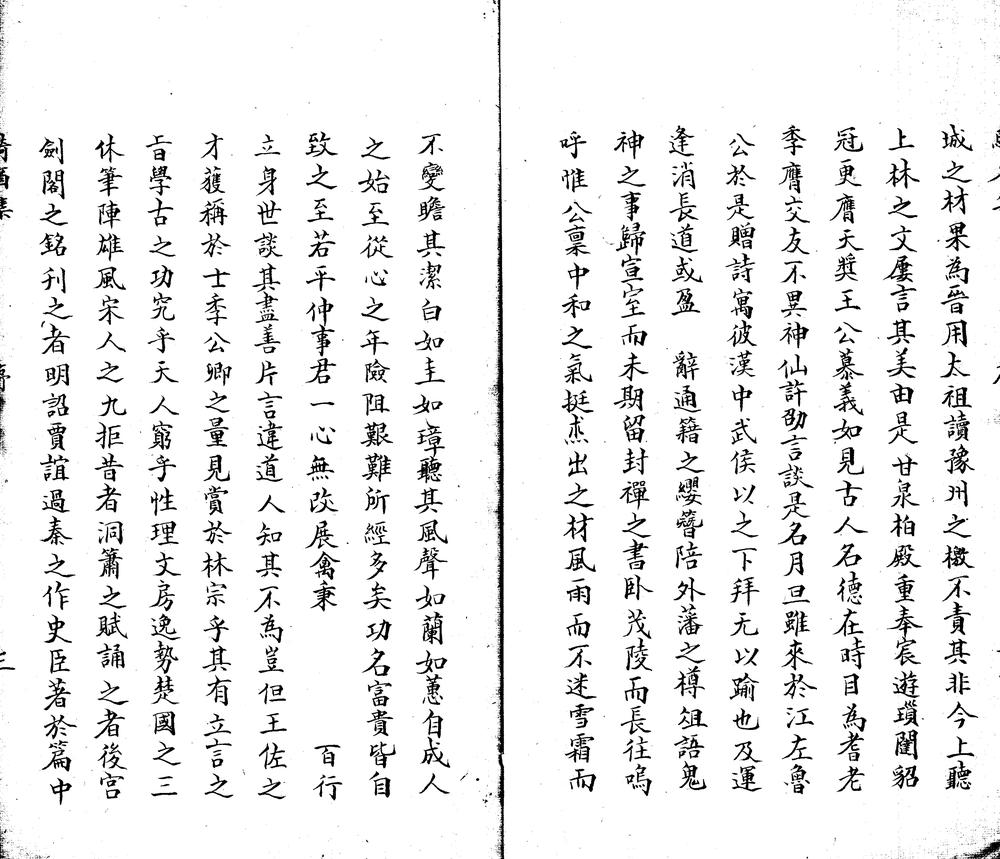 城之材果為晉用太祖讀豫州之檄不責其非今上聽
上林之文屢言其美由是甘泉柏殿重奉宸遊瑣闥貂
冠更膺天奬王公慕義如見古人名德在時目為耆老
季膺交友不異神仙許劭言談是名月旦雖來於江左魯
公於是贈詩寓彼漢中武侯以之下拜无以踰也及運
逢消長道或盈　辭通籍之纓簪陪外藩之樽俎語鬼
神之事歸宣室而未期留封禪之書卧茂陵而長往嗚
呼惟公禀中和之氣挺杰出之材風雨而不迷雪霜而
不變瞻其潔白如圭如璋聽其風聲如蘭如蕙自成人
之始至從心之年險阻艱難所經多矣功名富貴皆自
致之至若平仲事君一心無改展禽秉　百行
立身世談其盡善片言違道人知其不為豈但王佐之
才獲稱於士季公卿之量見賞於林宗乎其有立言之
旨學古之功究乎天人窮乎性理文房逸勢楚國之三
休筆陣雄風宋人之九拒昔者洞簫之賦誦之者後宮
劍閣之銘刊之者明詔賈誼過秦之作史臣著於篇中
騎省集